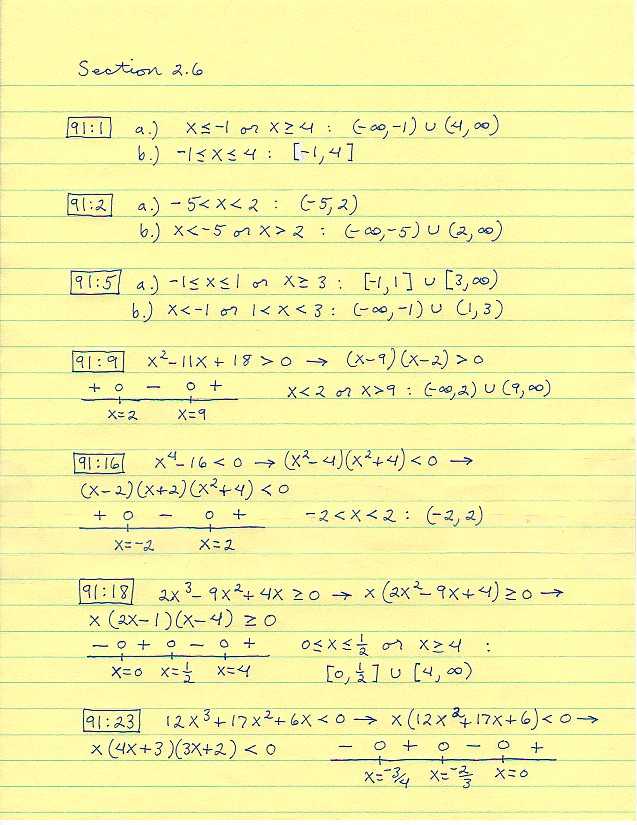 Section 2.6
91:1 a.) x ≤ -1 or x ≥ 4 : (-∞,-1) ∪ (4,∞)
b.) -1 ≤ x ≤ 4 : [-1,4]
91:2 a.) -5 < x < 2 : (-5,2)
b.) x < -5 or x > 2 : (-∞,-5) ∪ (2,∞)
91:5 a.) -1 ≤ x ≤ 1 or x ≥ 3 : [-1,1] ∪ [3,∞)
b.) x < -1 or 1 < x < 3 : (-∞,-1) ∪ (1,3)
91:9 x² - 11x + 18 > 0 → (x-9)(x-2) > 0
+ 0 - 0 + x < 2 or x > 9 : (-∞,2) ∪ (9,∞)
x=2 x=9
91:16 x⁴ - 16 < 0 → (x²-4)(x²+4) < 0 →
(x-2)(x+2)(x²+4) < 0
+ 0 - 0 + -2 < x < 2 : (-2,2)
x=-2 x=2
91:18 2x³ - 9x² + 4x ≥ 0 → x(2x²-9x+4) ≥ 0 →
x(2x-1)(x-4) ≥ 0
- 0 + 0 - 0 + 0 ≤ x ≤ 1/2 or x ≥ 4 :
x=0 x=1/2 x=4 [0,1/2] ∪ [4,∞)
91:23 12x³ + 17x² + 6x < 0 → x(12x²+17x+6) < 0 →
x(4x+3)(3x+2) < 0 - 0 + 0 - 0 +
x=-3/4 x=-2/3 x=0